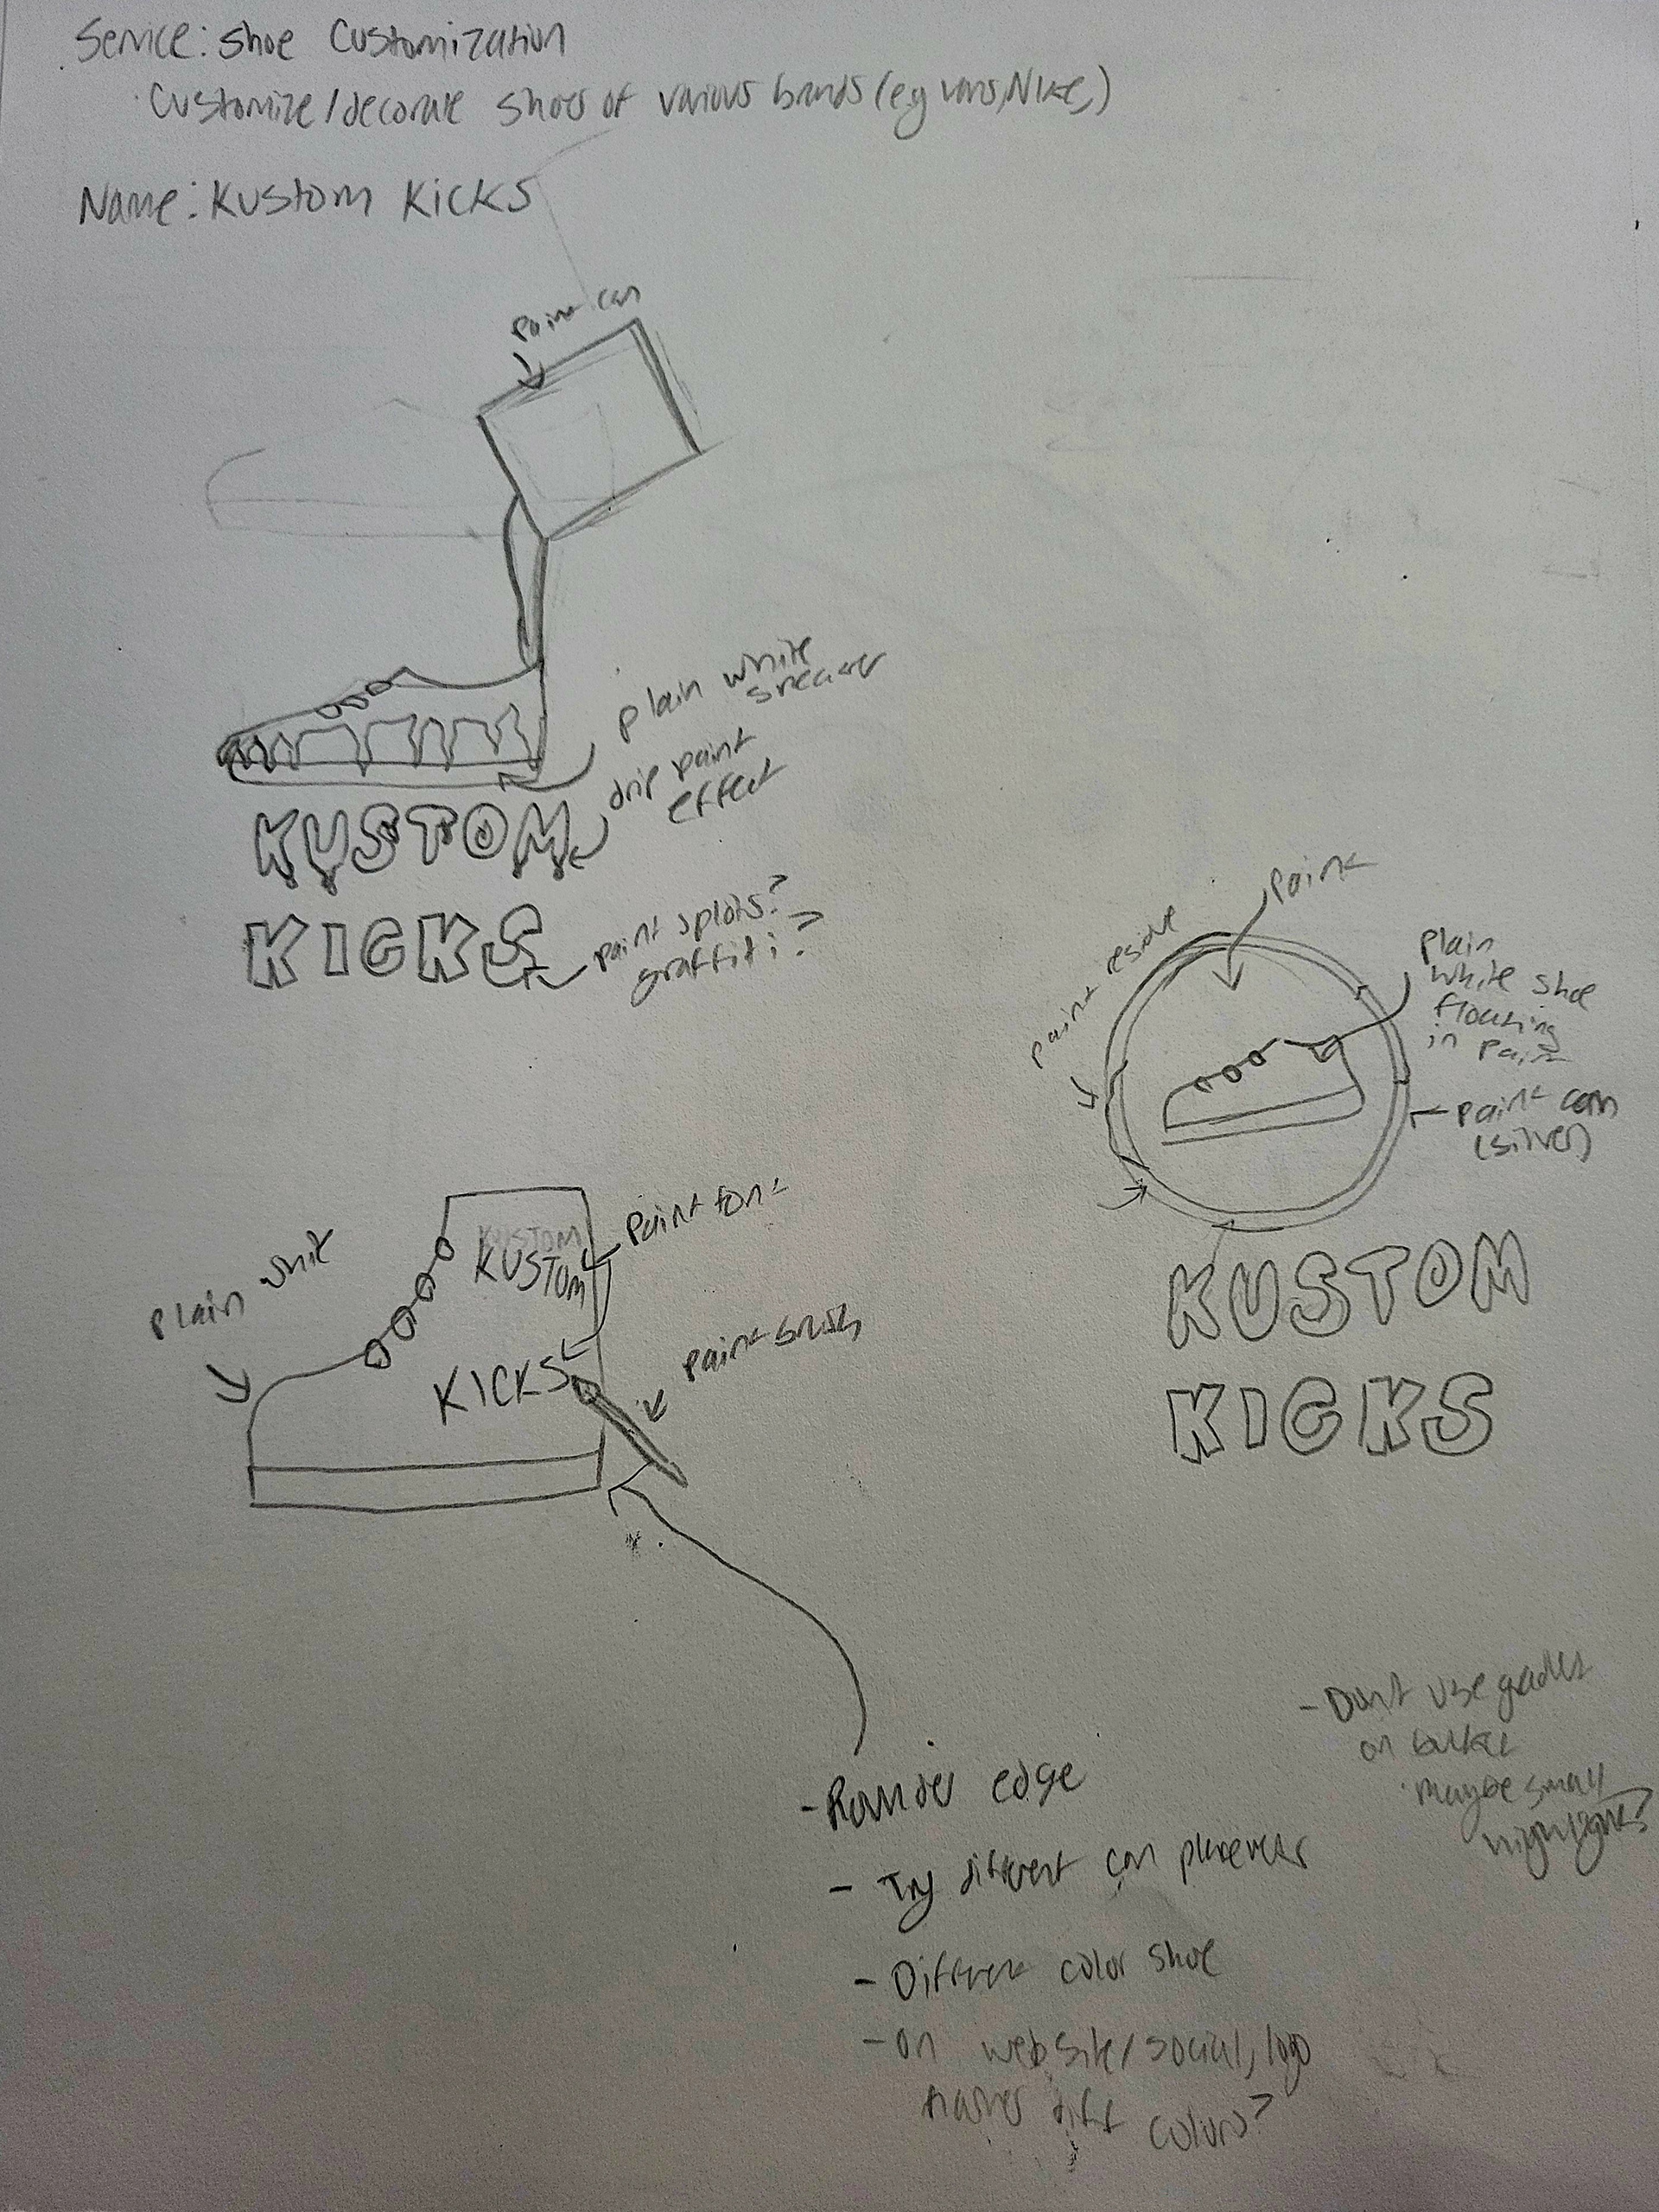 Service: Shoe Customization
Customize/decorate shoes of various brands (eg vans, Nike,)
Name: Kustom Kicks
Paint can
plain white
sneaker
drip paint
effect
KUSTOM
KICKS
paint splots?
graffiti?
Paint
paint
plain
white shoe
floating
in paint
paint can
(silver)
KUSTOM
KICKS
plain white
KUSTOM
KUSTOM
KICKS
Paint font
paint brush
- Rounder edge
- Try different can placement
- Different color shoe
- on website/social, logo
diff colors?
- Don't use
on bucket
maybe small
highlights?